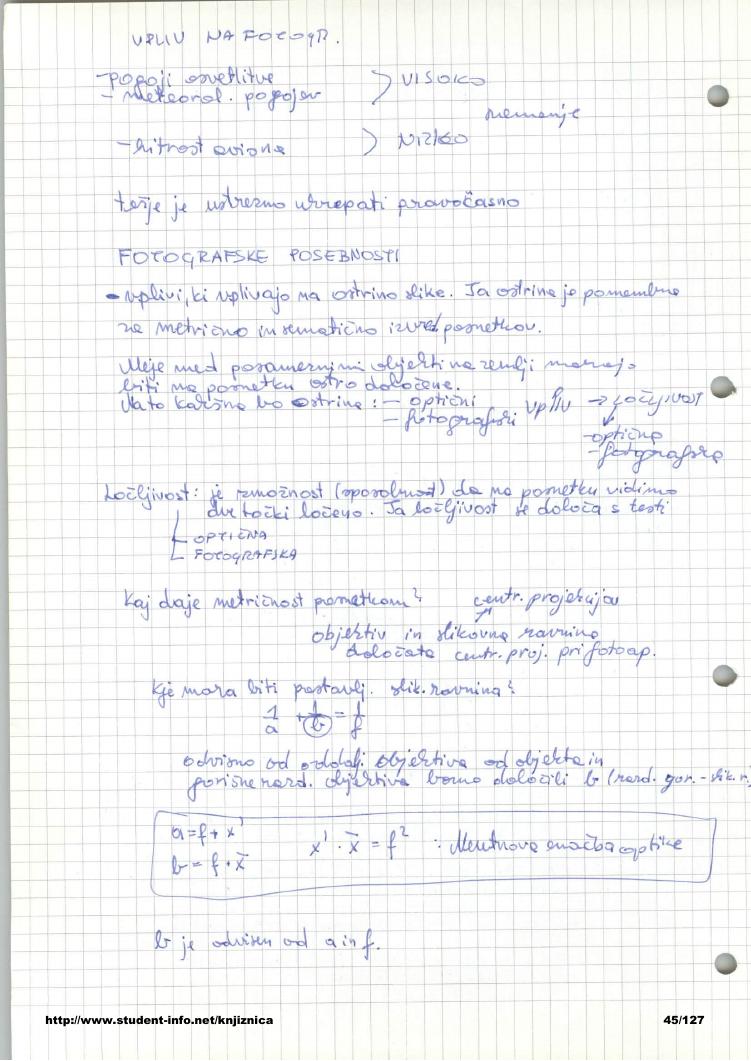 VPLIV NA FOTOGR.
- pogoji osvetlitve ) VISOKO
- meteorol. pogojev
snemanje
- hitrost aviona ) NIZKO
težje je ustrezno ukrepati pravočasno
FOTOGRAFSKE POSEBNOSTI
- vplivi, ki vplivajo na ostrino slike. Ta ostrina je pomembna
za metrično in sematično izvred. posnetkov.
Meje med posameznimi objekti na zemlji morajo
biti na posnetku ostro določene.
Na to kakšna bo ostrina: - optični vpliv → LOČLJIVOST
- fotografski
- optična
- fotografska
Ločljivost: je zmožnost (sposobnost) da na posnetku vidimo
dve točki ločeno. Ta ločljivost se določa s testi
OPTIČNA
FOTOGRAFSKA
Kaj daje metričnost posnetkom? centr. projekcija
objektiv in slikovna ravnina
določata centr. proj. pri fotoap.
Kje mora biti postavlj. slik. ravnina?
1/a + 1/b = 1/f
odvisno od oddalj. objektiva od objekta in
goriščne razd. objektiva bomo določili b (razd. gor. - slik. r.
a = f + x'
x' · x̄ = f² : Newtnova enačba optike
b = f + x̄
b je odvisen od a in f.
http://www.student-info.net/knjiznica 45/127